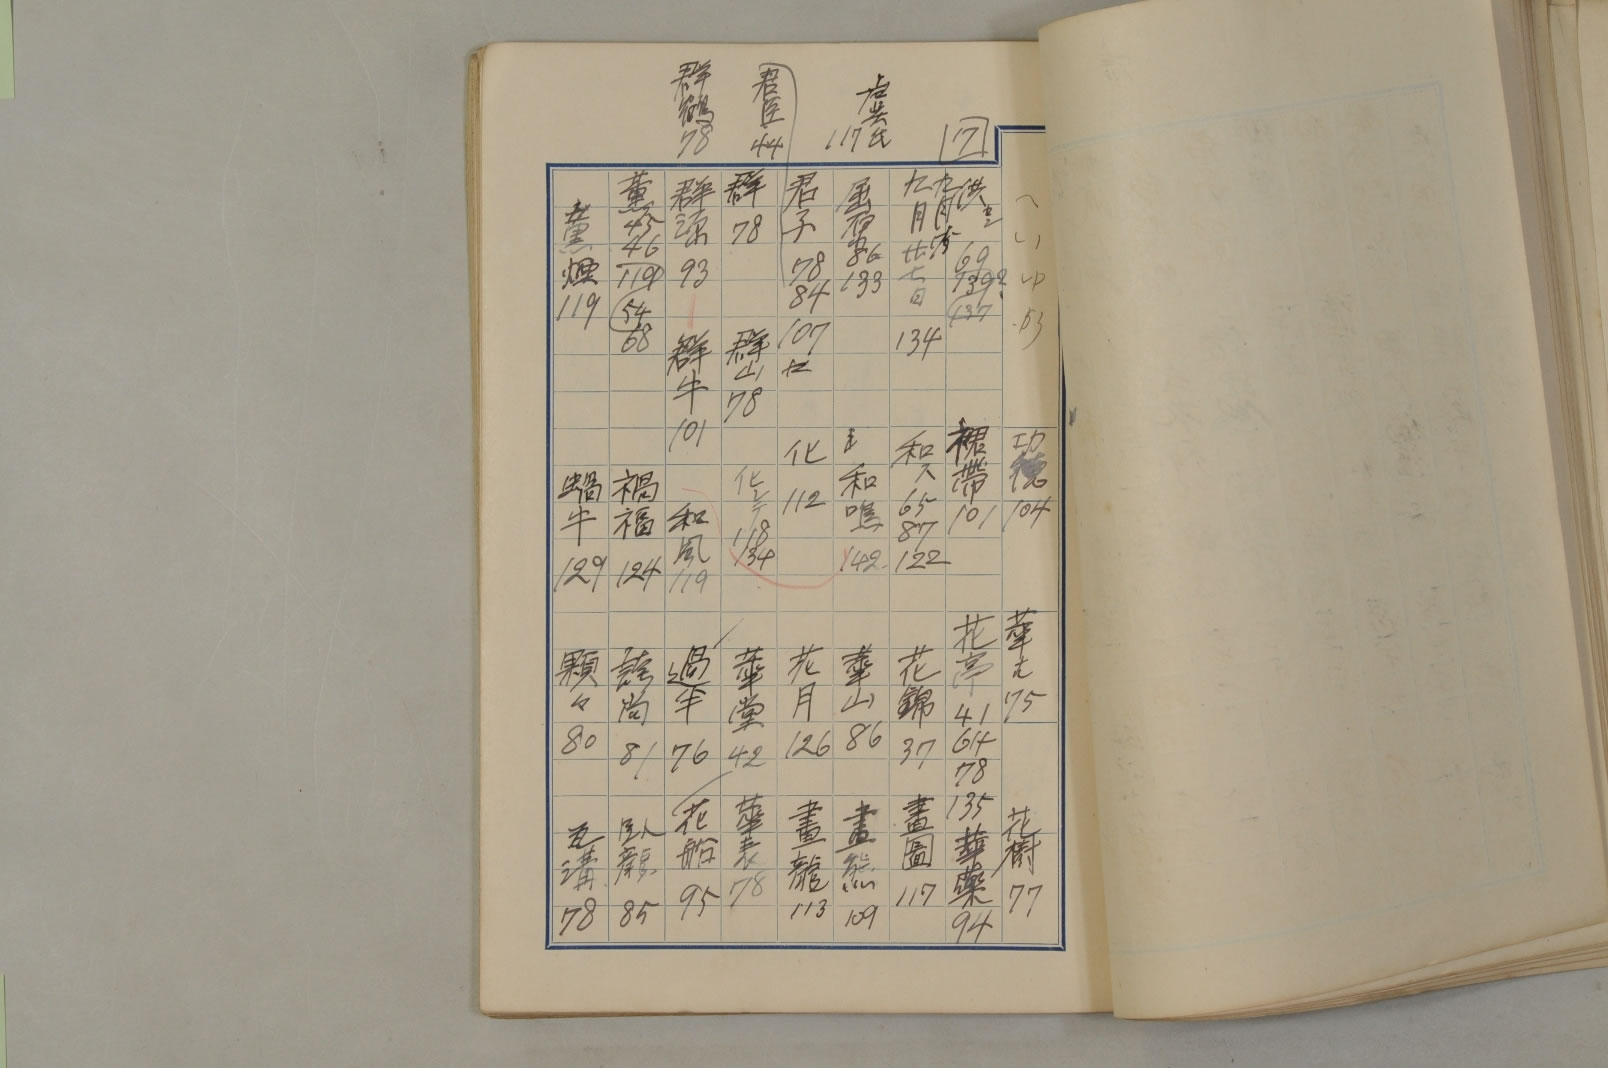 17
117
君臣 44
群鶴 78
功徳 104
華 75
花樹 77
69
137
裙帶 101
花亭 41 64 78 135
華藥 94
九月
九月廿七日 134
和人 65 87 122
花錦 37
畫圖 117
屈 86 133
和鳴 142
華山 86
畫熊 109
君子 78 84 107
化 112
花月 126
畫龍 113
群 78
群山 78
118 134
華堂 42
華表 78
群 93
群牛 101
和風 119
過半 76
花船 95
薫 45 46 119 54 68
禍福 124
誇尚 81
臥龍 85
薫煙 119
蝸牛 129
顆々 80
瓦溝 78